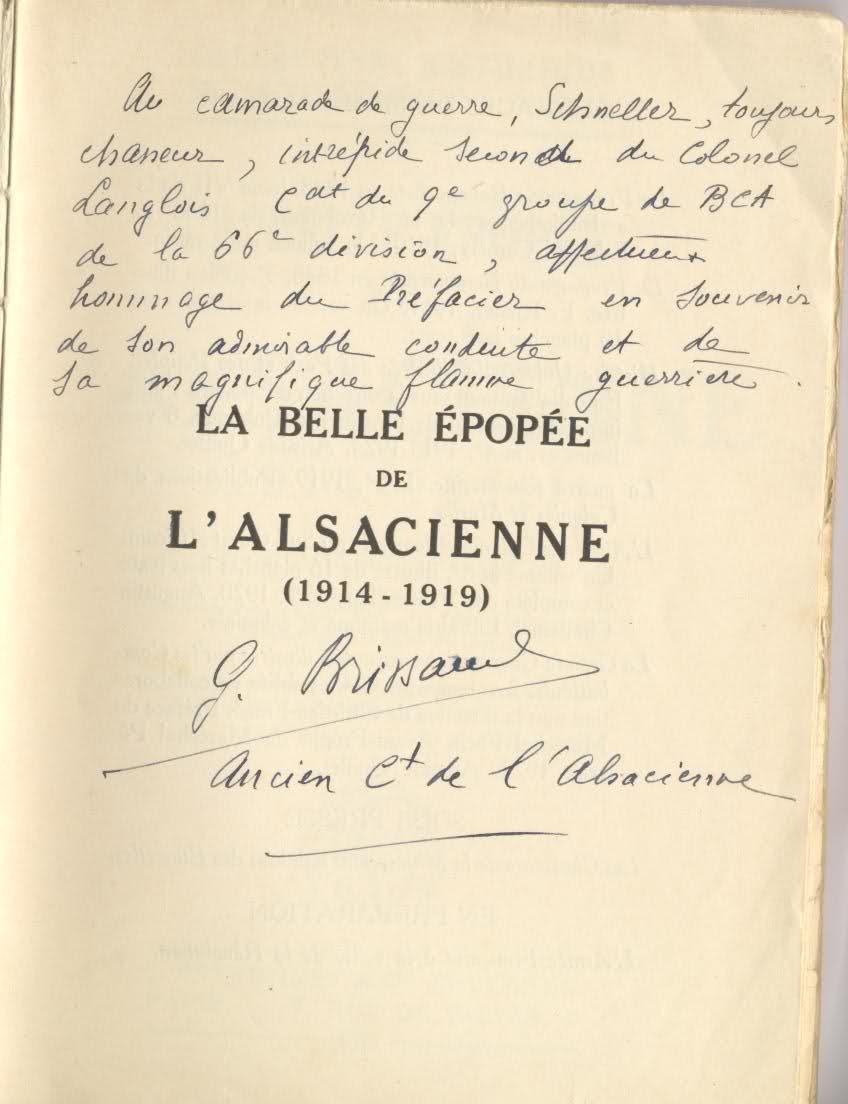 Au camarade de guerre, Schneller, toujours
chasseur, intrépide second du Colonel
Langlois Cdt du 9e groupe de BCA
de la 66e division, affectueux
hommage du Préfacier en souvenir
de son admirable conduite et de
sa magnifique flamme guerrière.
LA BELLE ÉPOPÉE
DE
L'ALSACIENNE
(1914-1919)
G. Brissaud
Ancien Ct de l'Alsacienne